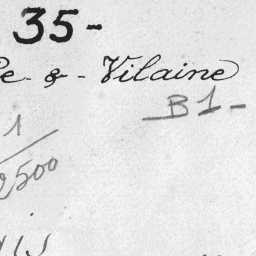 35-
e-&-Vilaine
B1-
1/2500